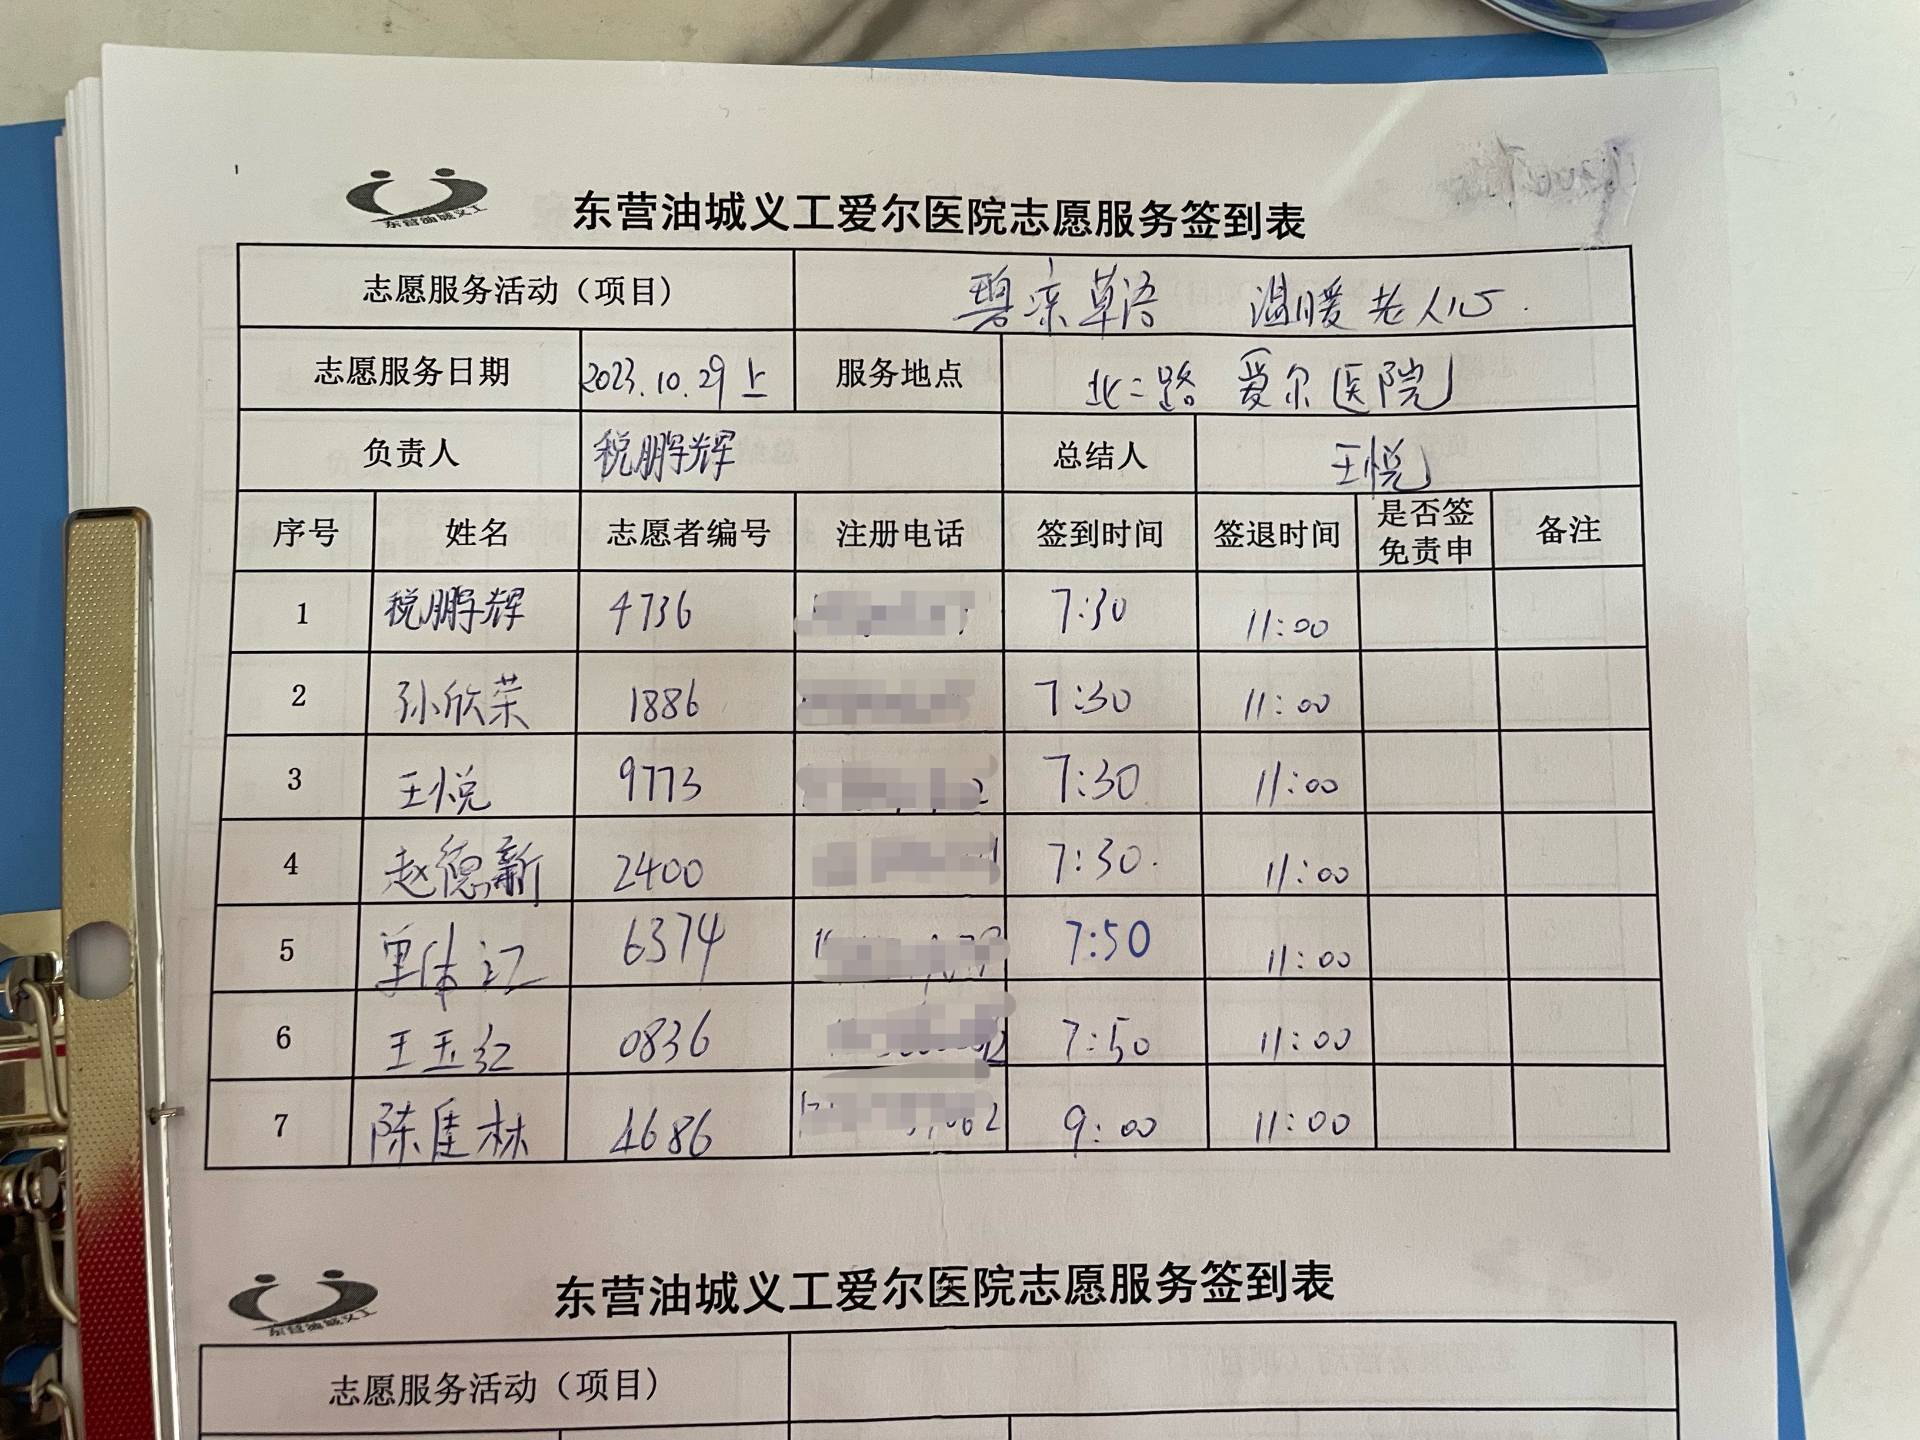 东营油城义工
东营油城义工爱尔医院志愿服务签到表
志愿服务活动（项目） 碧凉草语 温暖老人心.
志愿服务日期 2023.10.29上 服务地点 北二路 爱尔医院
负责人 税鹏辉 总结人 王悦
序号 姓名 志愿者编号 注册电话 签到时间 签退时间 是否签免责申 备注
1 税鹏辉 4736 7:30 11:00
2 孙欣荣 1886 7:30 11:00
3 王悦 9773 7:30 11:00
4 赵德新 2400 7:30. 11:00
5 单体江 6374 7:50 11:00
6 王玉红 0836 7:50 11:00
7 陈佳林 4686 9:00 11:00
东营油城义工
东营油城义工爱尔医院志愿服务签到表
志愿服务活动（项目）